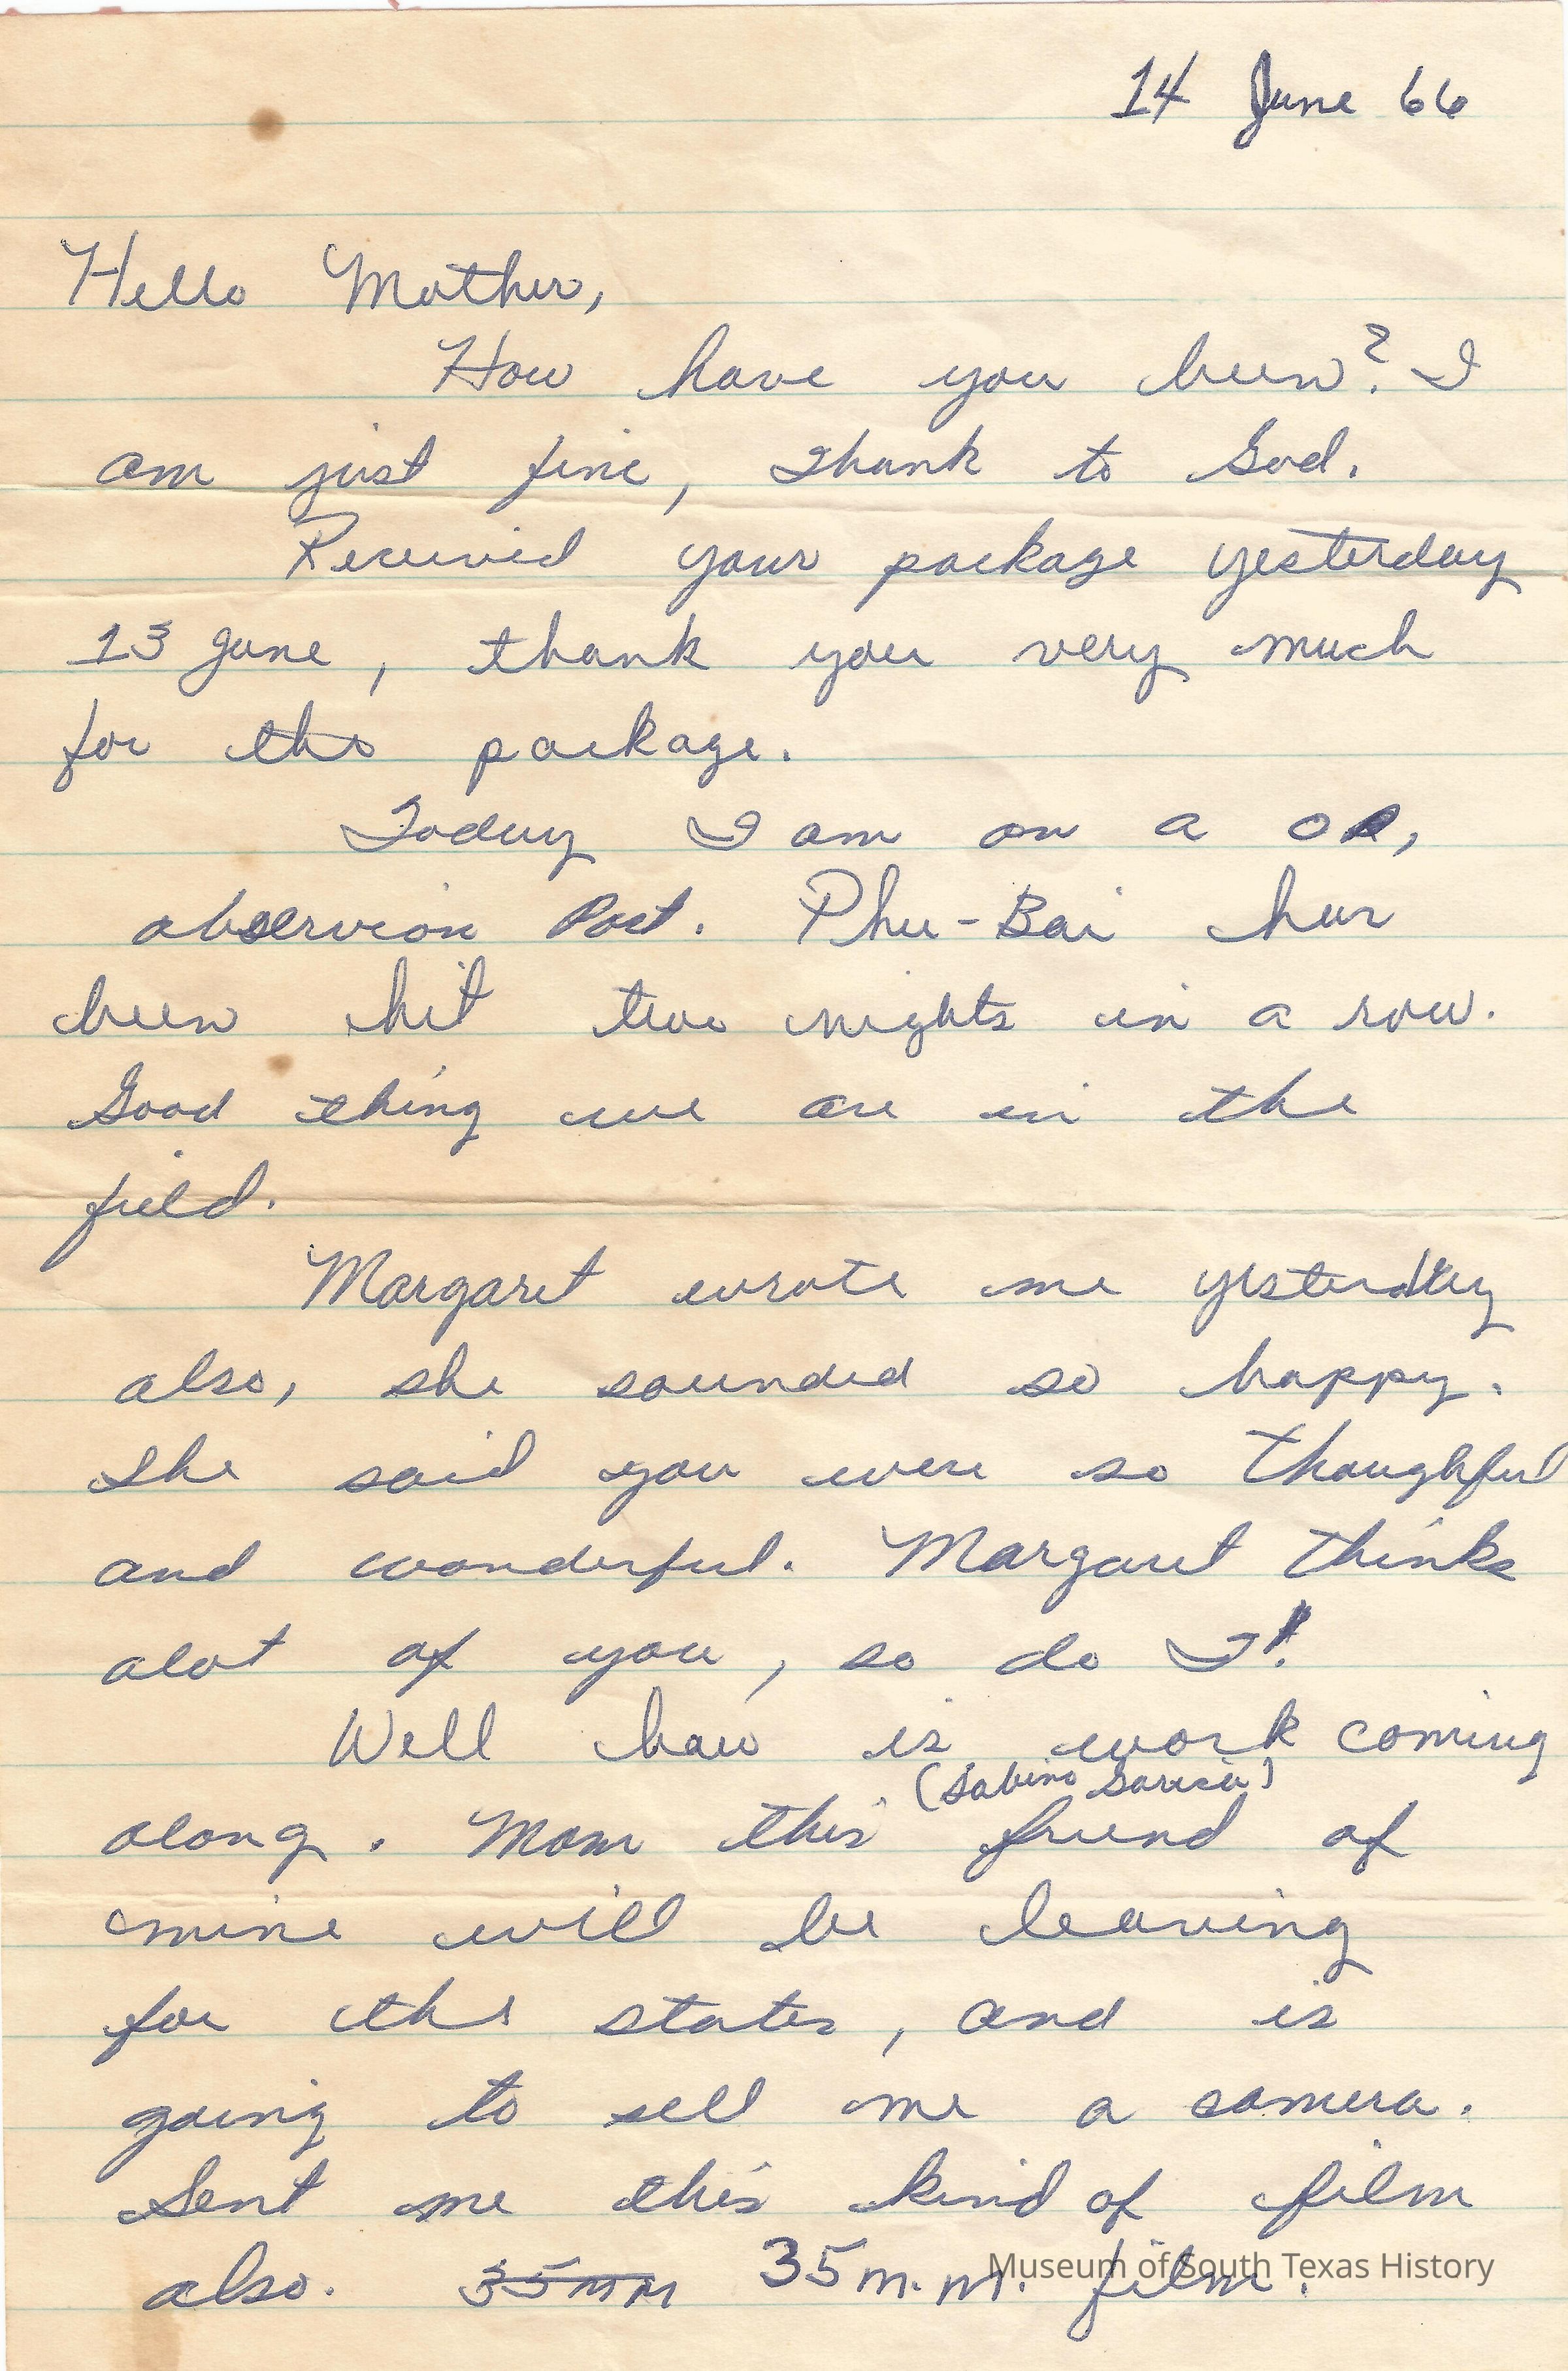 14 June 66
Hello Mother,
How have you been? I
am just fine, thank to God.
Received your package yesterday
13 June, thank you very much
for the package.
Today I am on a OP,
observion Post. Phu-Bai has
been hit two nights in a row.
Good thing we are in the
field.
Margaret wrote me yesterday
also, she sounded so happy.
She said you were so thoughful
and wonderful. Margaret thinks
alot of you, so do I!
Well how is work coming
(Sabino Garcia)
along. Mom this friend of
mine will be leaving
for the states, and is
going to sell me a camera.
Sent me this kind of film
also. 35mm 35m.m. film.
Museum of South Texas History